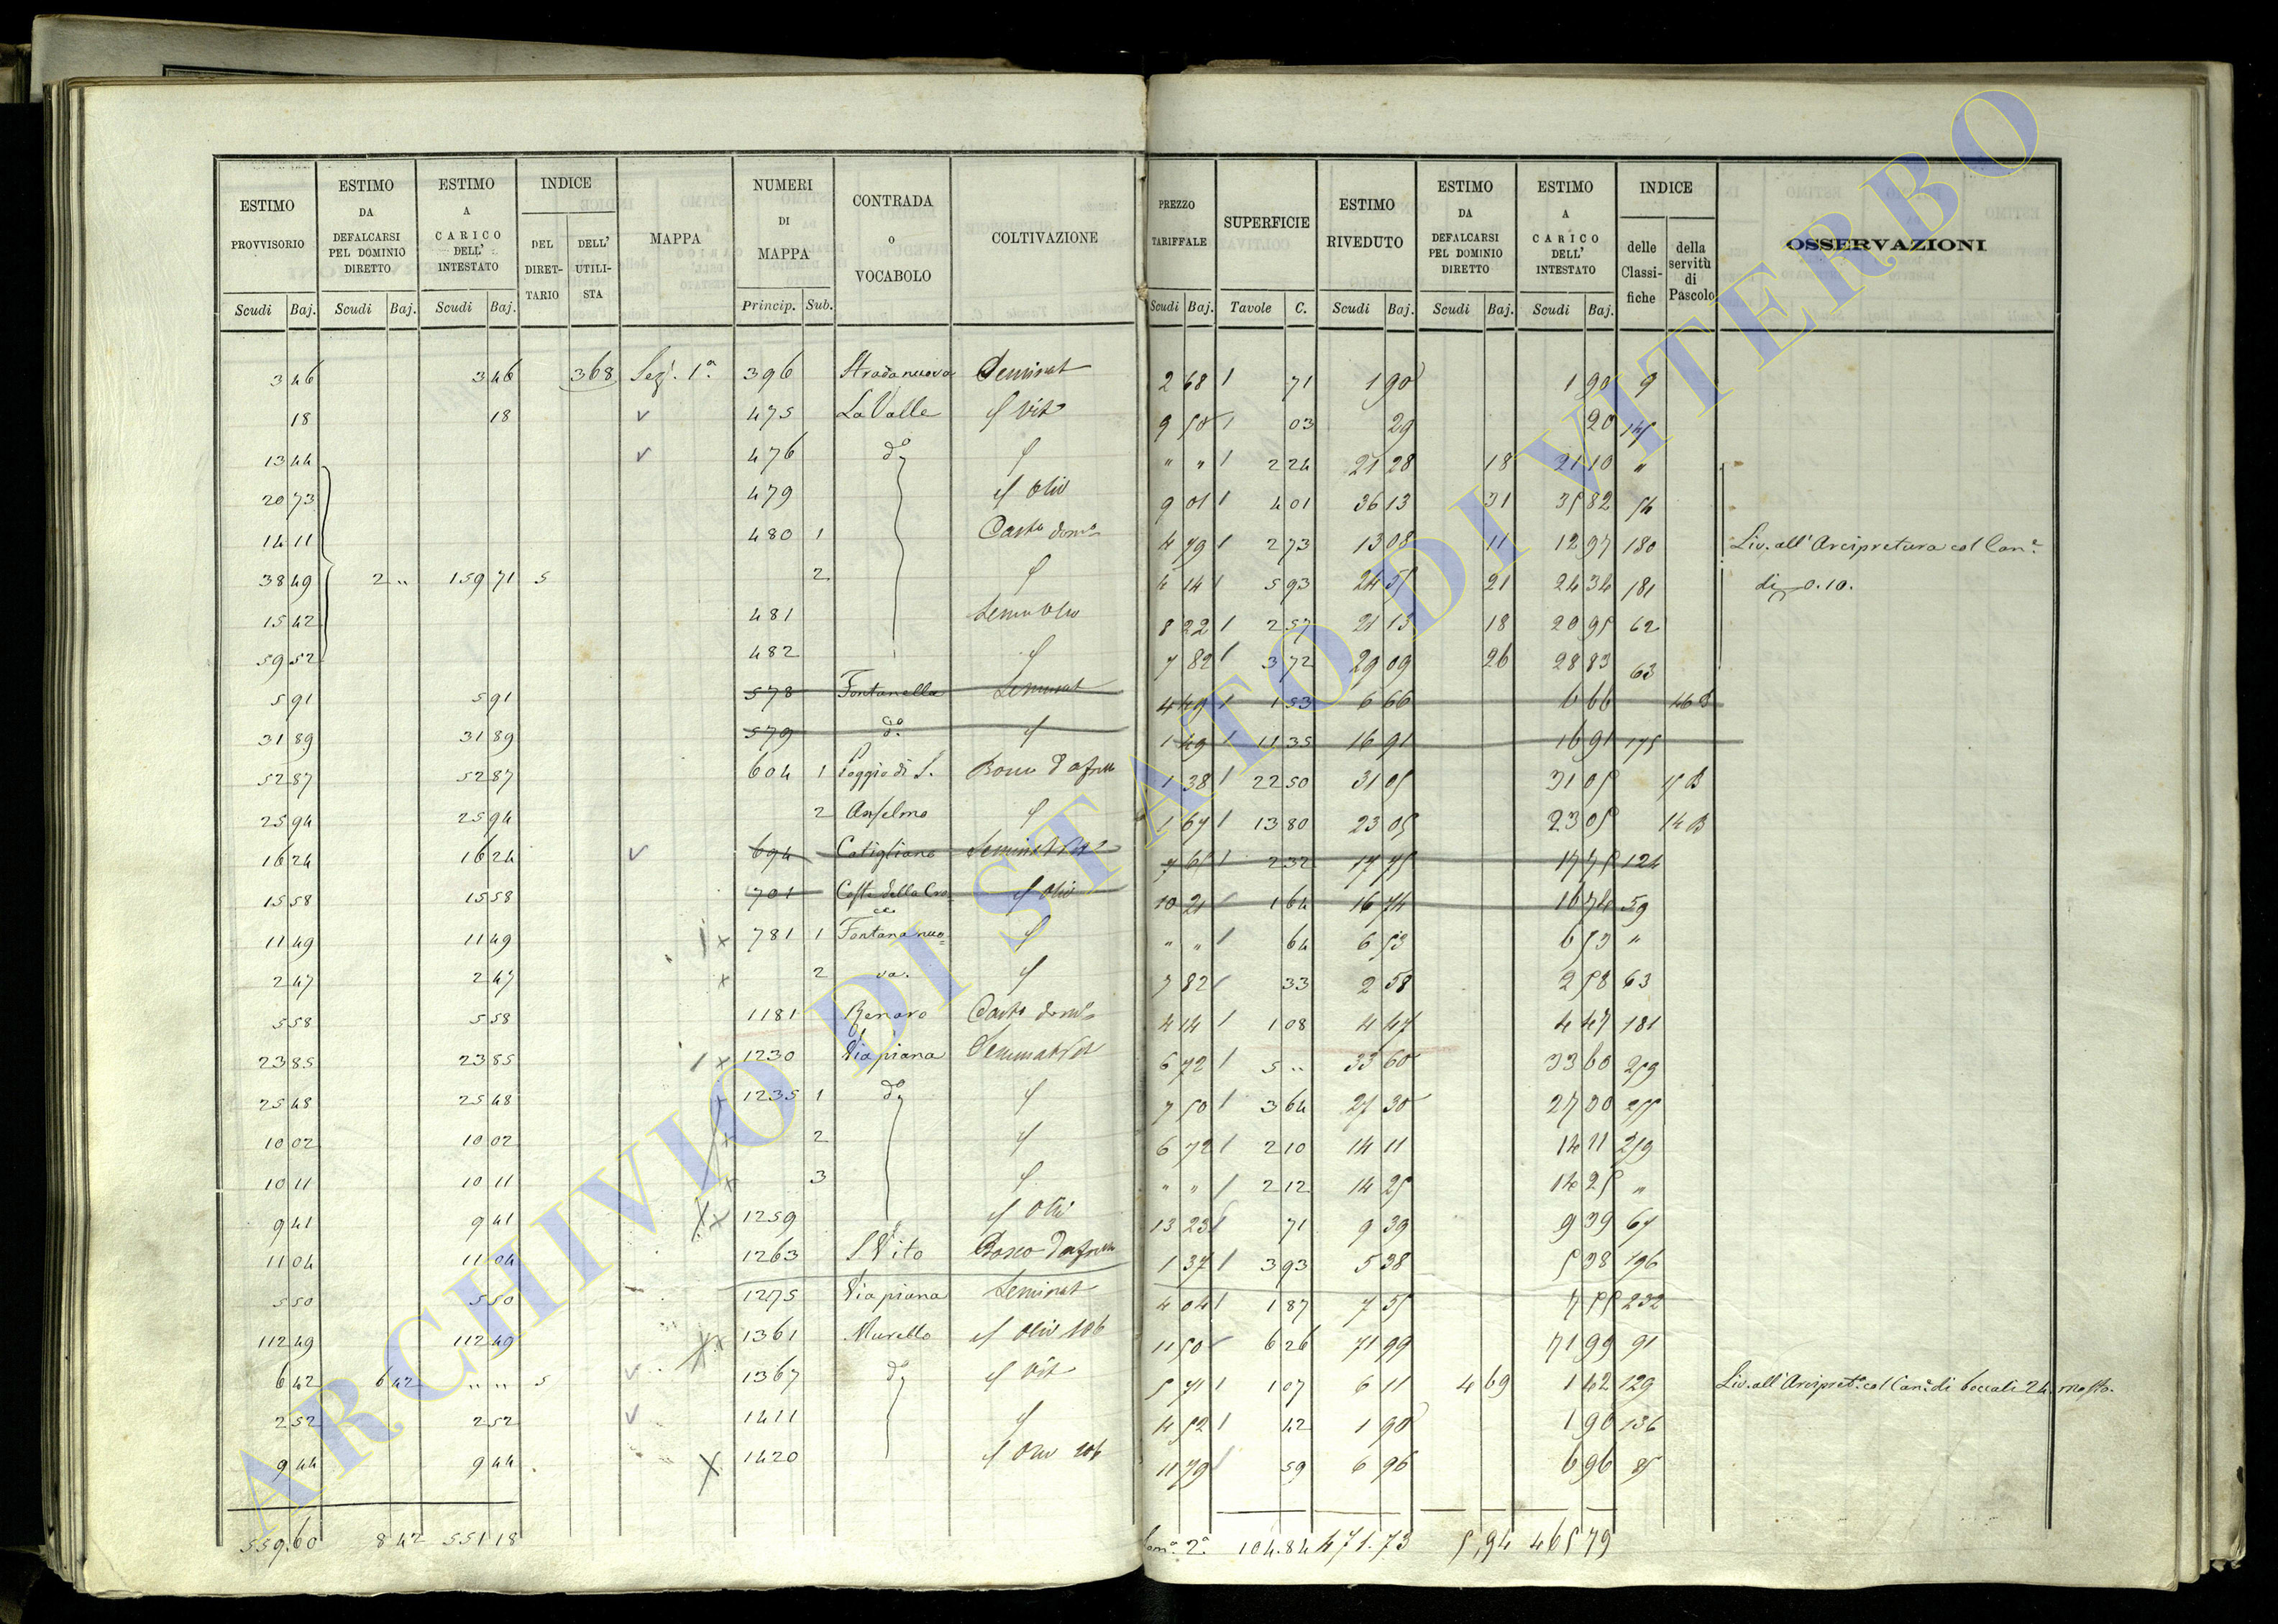 ESTIMO PROVVISORIO | ESTIMO DA DEFALCARSI PEL DOMINIO DIRETTO | ESTIMO A CARICO DELL' INTESTATO | INDICE | MAPPA | NUMERI DI MAPPA | CONTRADA o VOCABOLO | COLTIVAZIONE | PREZZO TARIFFALE | SUPERFICIE | ESTIMO RIVEDUTO | ESTIMO DA DEFALCARSI PEL DOMINIO DIRETTO | ESTIMO A CARICO DELL' INTESTATO | INDICE | OSSERVAZIONI
DEL DIRETTARIO | DELL' UTILISTA | delle Classifiche | della servitù di Pascolo
Scudi Baj. | Scudi Baj. | Scudi Baj. | Princip. Sub. | Scudi Baj. | Tavole C. | Scudi Baj. | Scudi Baj. | Scudi Baj.
3 46 | 3 46 | 368 | Sez. 1ª | 396 | Strada nuova | Seminat | 2 68 | 71 | 1 90 | 1 90 | 9
18 | 18 | 475 | La Valle | Vit | 9 50 | 03 | 29
13 44 | 476 | dº | " " | 2 24 | 21 28 | 18 | 21 10 | "
20 73 | 479 | Oliv | 9 01 | 4 01 | 36 13 | 31 | 35 82 | 54
14 11 | 480 1 | 4 79 | 2 73 | 13 08 | 11 | 12 97 | 180 | Liv. all' Arcipretura col Can.e
38 49 | 2 " | 159 71 | 5 | 2 | 4 14 | 5 93 | 24 55 | 21 | 24 34 | 181 | di 0.10.
15 42 | 481 | Sem Oliv | 8 22 | 2 57 | 21 13 | 18 | 20 95 | 62
59 52 | 482 | 7 82 | 3 72 | 29 09 | 26 | 28 83 | 63
5 91 | 5 91 | 578 | Fontanella | Seminat | 4 49 | 1 53 | 6 66 | 6 66
31 89 | 31 89 | 579 | dº | 1 49 | 11 35 | 16 91 | 16 91 | 175
52 87 | 52 87 | 604 1 | Poggio di S. | 1 38 | 22 50 | 31 05 | 31 05
25 94 | 25 94 | 2 | Anselmo | 1 67 | 13 80 | 23 05 | 23 05 | 14 B
16 24 | 16 24 | 694 | Catigliano | 7 65 | 2 32 | 17 75 | 17 75 | 124
15 58 | 15 58 | 701 | Costa della Cro | Oliv | 10 21 | 1 64 | 16 74 | 16 74 | 59
ce
11 49 | 11 49 | 781 1 | Fontana nuo= | " " | 64 | 6 53 | 6 53 | "
2 47 | 2 47 | 2 | va. | 7 82 | 33 | 2 58 | 2 58 | 63
5 58 | 5 58 | 1181 | Renaro | 4 14 | 1 08 | 4 47 | 4 47 | 181
23 85 | 23 85 | 1230 | Via piana | Seminat Vit | 6 72 | 5 " | 33 60 | 33 60 | 259
25 48 | 25 48 | 1235 1 | dº | 7 50 | 3 64 | 27 30 | 27 30
10 02 | 10 02 | 2 | 6 72 | 2 10 | 14 11 | 14 11 | 259
10 11 | 10 11 | 3 | " " | 2 12 | 14 25 | 14 25 | "
9 41 | 9 41 | 1259 | Oliv | 13 23 | 71 | 9 39 | 9 39 | 67
11 04 | 11 04 | 1263 | S Vito | Bosco | 1 37 | 3 93 | 5 38 | 5 38 | 196
5 50 | 5 50 | 1275 | Via piana | Seminat | 4 04 | 1 87 | 7 55 | 7 55 | 232
112 49 | 112 49 | 1361 | Murello | Oliv | 11 50 | 6 26 | 71 99 | 71 99 | 91
6 42 | 6 42 | " " | 5 | 1367 | dº | Vit | 5 71 | 1 07 | 6 11 | 4 69 | 1 42 | 129 | Liv. all' Arcipret.a col Can.e di boccali 24 mosto.
2 52 | 2 52 | 1411 | 4 52 | 42 | 1 90 | 1 90 | 136
9 44 | 9 44 | 1420 | 11 79 | 59 | 6 96 | 6 96 | 85
559.60 | 8 42 | 551 18 | 104.84 | 471.73 | 5,94 | 465 79
ARCHIVIO DI STATO DI VITERBO